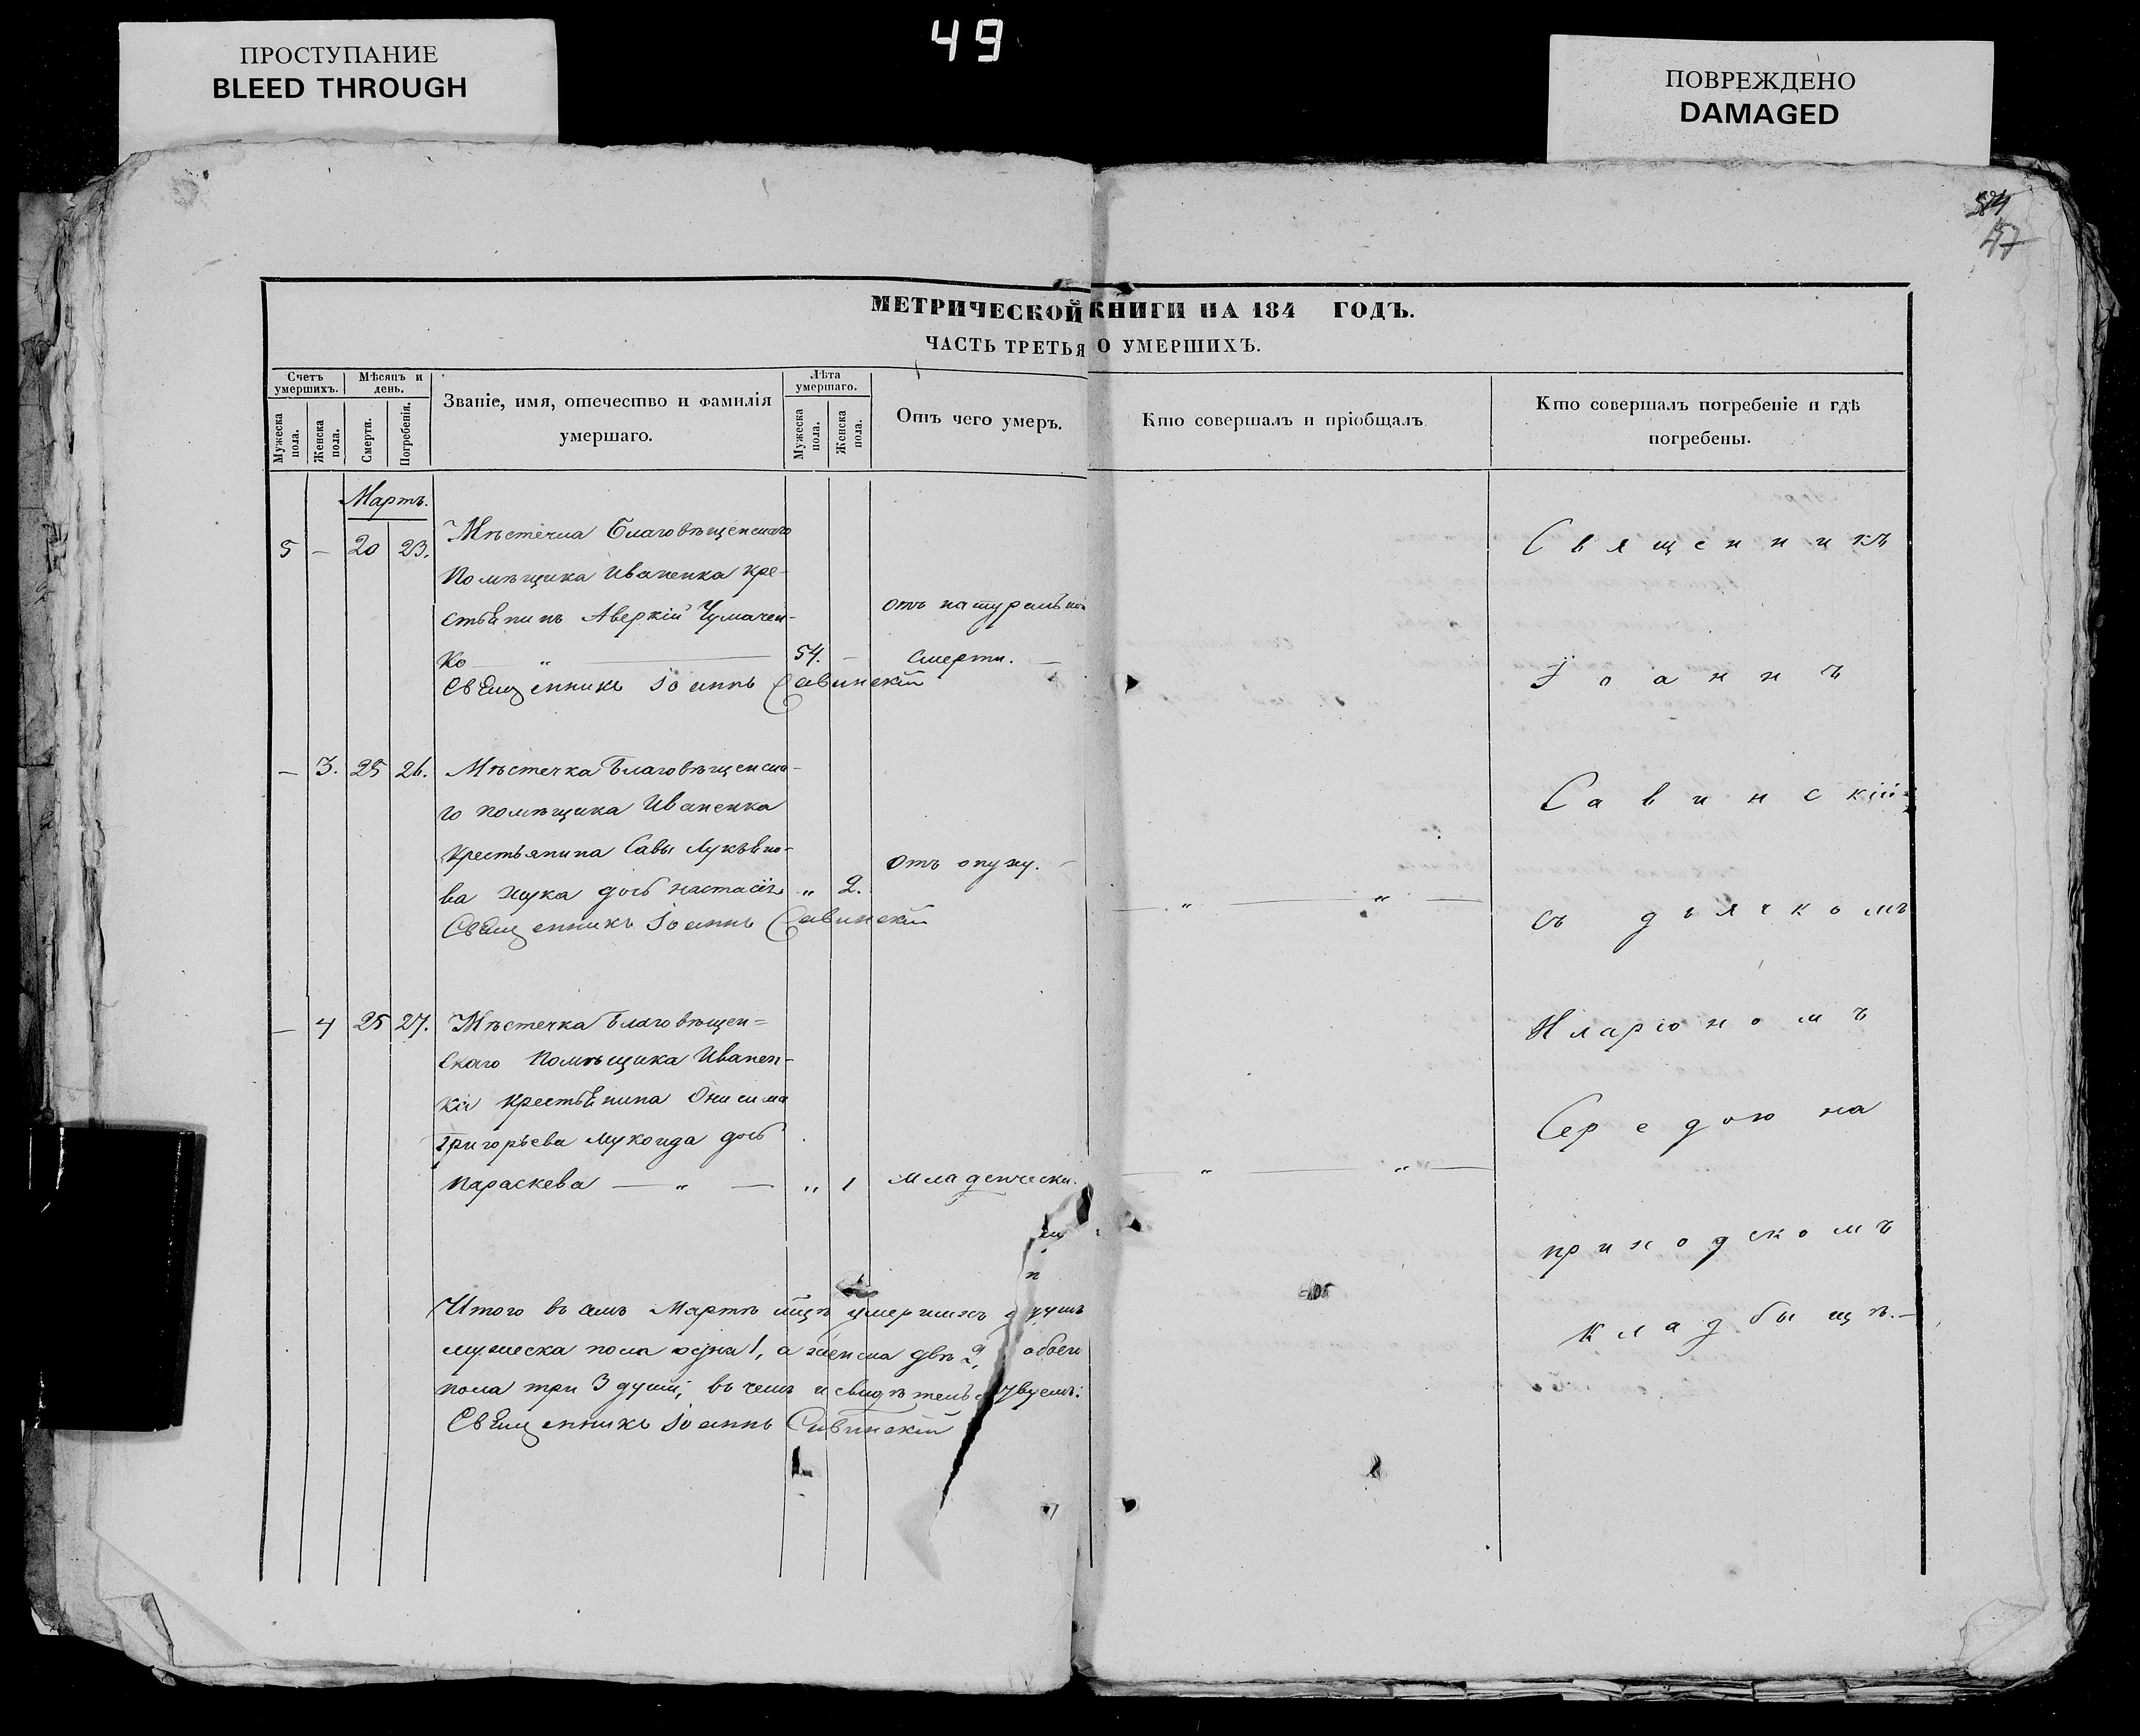 ПРОСТУПАНИЕ
BLEED THROUGH
49
ПОВРЕЖДЕНО
DAMAGED
47
МЕТРИЧЕСКОЙ КНИГИ НА 184 ГОДЪ.
ЧАСТЬ ТРЕТЬЯ О УМЕРШИХЪ.
Счетъ умершихъ.
Мужеска пола.
Женска пола.
Мѣсяцъ и день.
Смерти.
Погребенія.
Званіе, имя, отечество и фамилія умершаго.
Лѣта умершаго.
Мужеска пола.
Женска пола.
Отъ чего умеръ.
Кто совершалъ и пріобщалъ
Кто совершалъ погребеніе и гдѣ погребены.
Мартъ.
5 — 20 23. Мѣстечка Благовѣщенскаго
Помѣщика Иваненка кре-
стьянинъ Аверкій Чумачен-
ко — „ — 54. — отъ натуральной
смерти. —
Священникъ Іоаннъ Савинскій
— 3. 25 26. Мѣстечка Благовѣщенска-
го помѣщика Иваненка
крестьянина Савы Лукьяно-
ва Жука дочь Настасія „ 2. Отъ опуху. — „ — „ —
Священникъ Іоаннъ Савинскій
— 4 25 27. Мѣстечка Благовѣщен=
скаго Помѣщика Иванен-
ка крестьянина Онисима
Григорьева Мукоида дочь
Параскева — „ — „ 1 младенческ. — „ — „ —
Итого въ семъ Мартѣ мцѣ умершихъ душъ
мужеска пола одна 1, а женска двѣ 2, обоего
пола три 3 души; въ чемъ и свидѣтельствуемъ:
Священникъ Іоаннъ Савинскій
Священникъ
Іоаннъ
Савинскій
съ дьячкомъ
Иларіономъ
Середою на
приходскомъ
кладбыщѣ. —